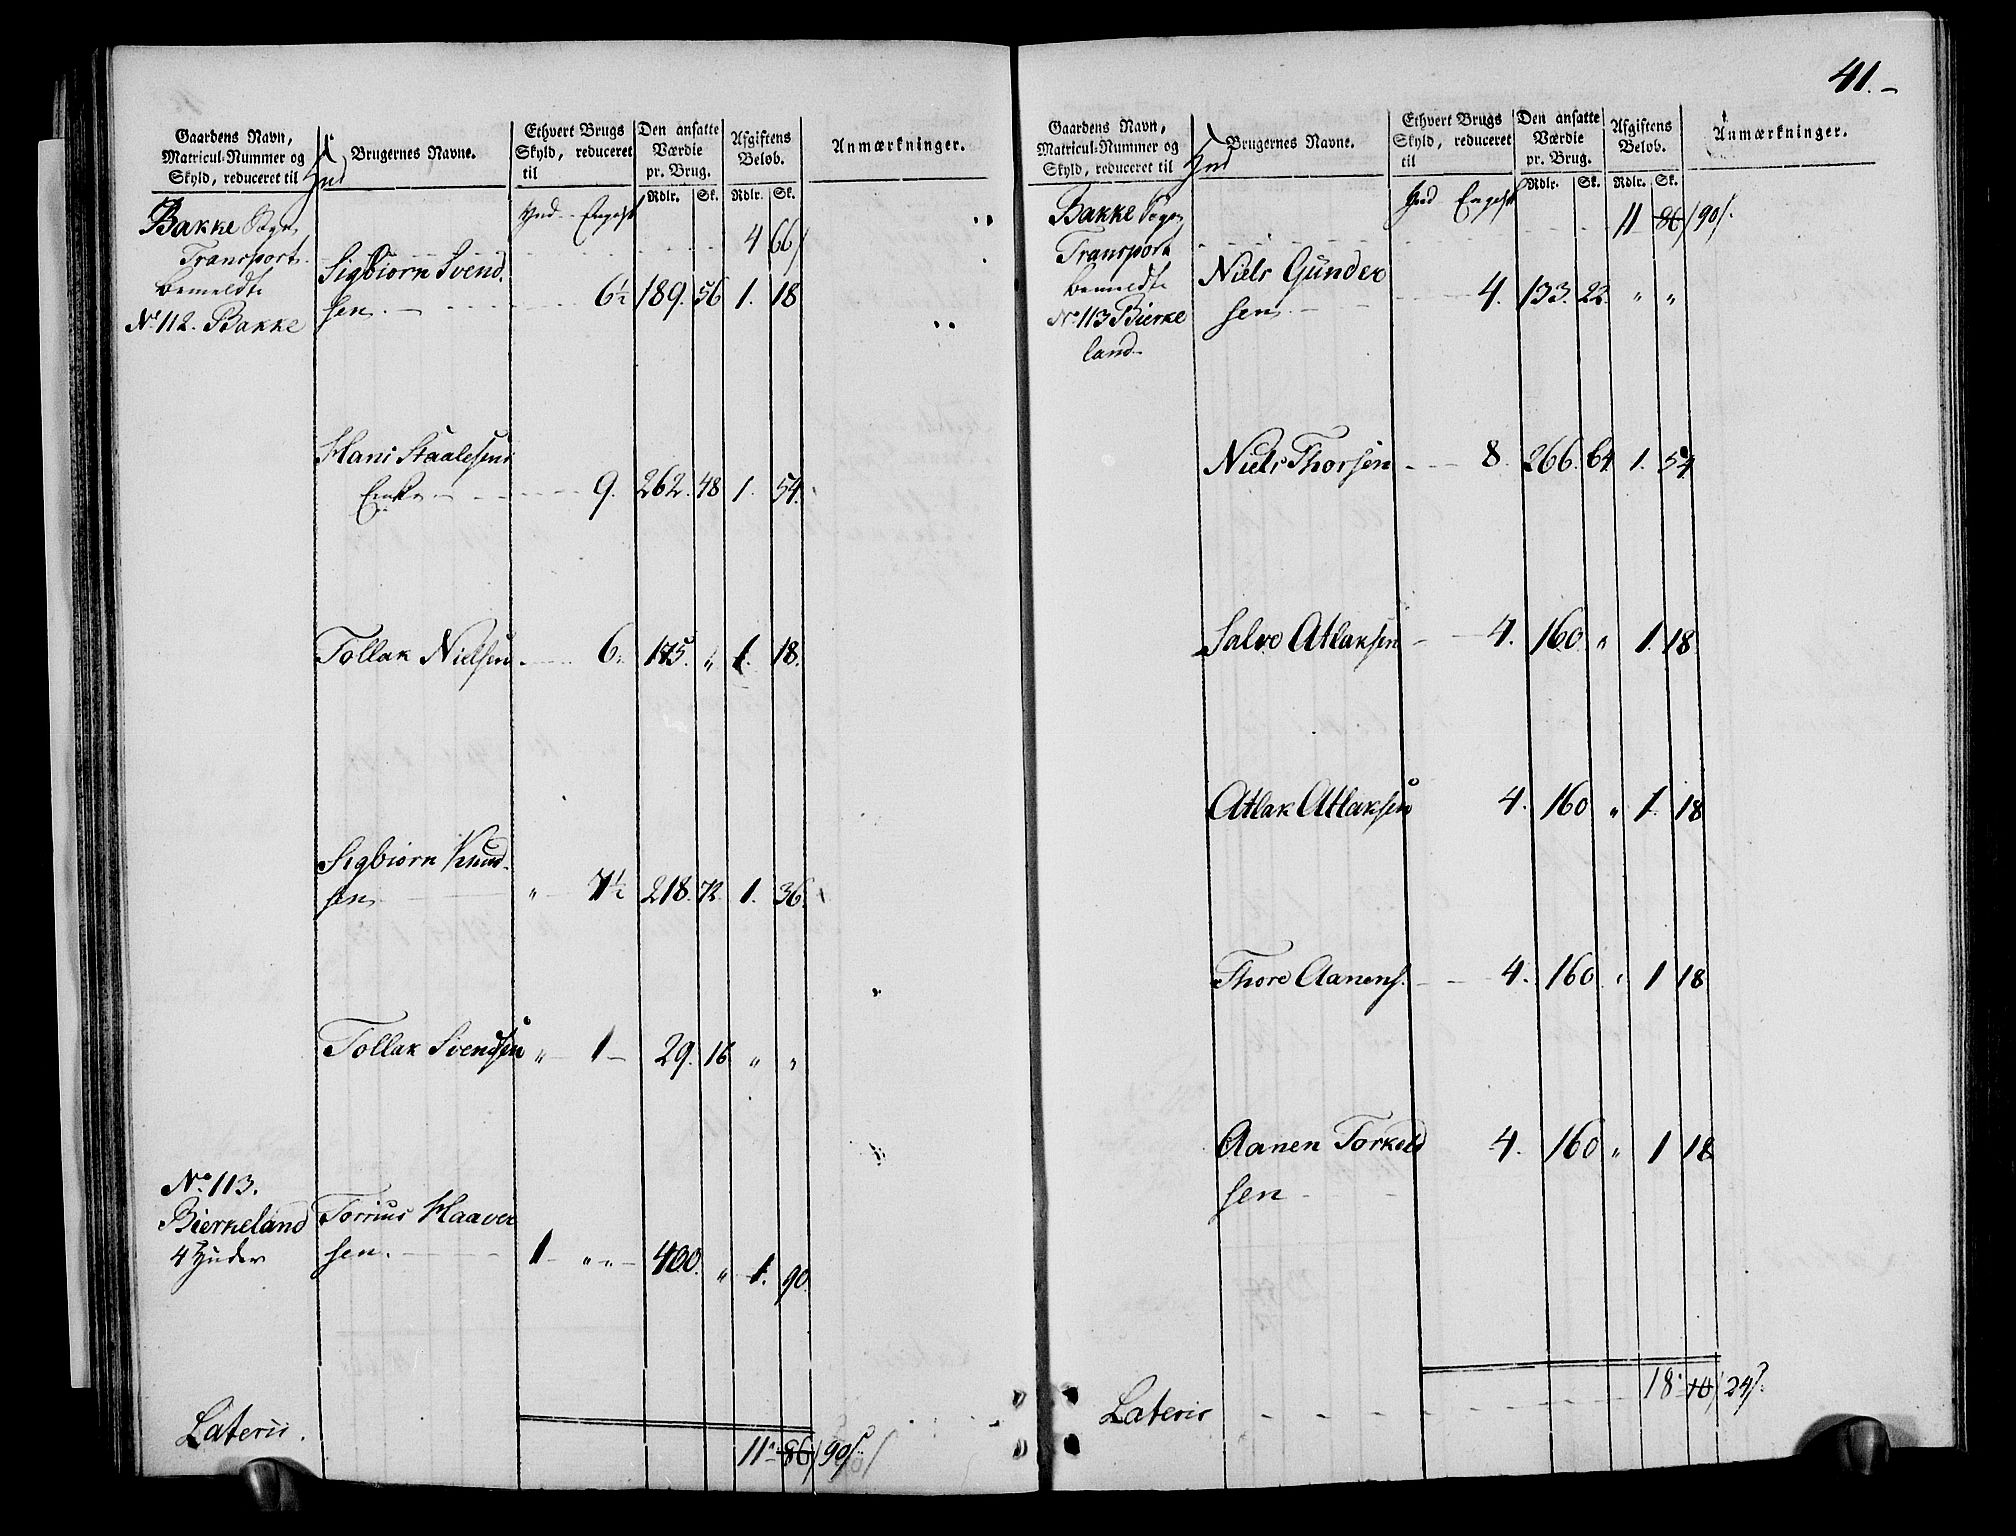 Gaardens Navn,
Matricul-Nummer og
Skyld, reduceret til Hud
Brugernes Navne.
Ethvert Brugs
Skyld, reduceret
til
Den ansatte
Værdie
pr. Brug.
Afgiftens
Beløb.
Anmærkninger.
Rdlr. Sk. Rdlr. Sk.
Hud Engesk
Bakke Sogn
Transport 4 66/
bemeldte Sigbiørn Svend-
No 112. Bakke sen. 6½ 189. 56 1. 18
Hans Staalesens
Enke 9. 262. 48 1. 54.
Tollak Nielsen. 6. 175. " 1. 18.
Sigbiørn Knud-
sen " 7½ 218. 72 1. 36.
Tollak Svendsen " 1 29. 16 " "
No. 113.
Bierkeland Torrius Haaver
4 Huder sen. 1 " " 400. " 1. 90.
Lateris. 11 86/ 90/
41.
Gaardens Navn,
Matricul-Nummer og
Skyld, reduceret til Hud
Brugernes Navne.
Ethvert Brugs
Skyld, reduceret
til
Den ansatte
Værdie
pr. Brug.
Afgiftens
Beløb.
Anmærkninger.
Rdlr. Sk. Rdlr. Sk.
Hud Engesk
Bakke Sogn 11 86/ 90/.
Transport
bemeldte Niels Gunder
No 113 Bierke sen 4. 133. 22. " "
land
Niels Thorsen 8. 266. 64 1. 54
Salve Atlaksen 4. 160 " 1. 18
Atlak Atlaksen 4. 160 " 1. 18
Thore Aanens. 4. 160 " 1 18
Aanen Torkeld 4. 160 " 1 18
sen
Lateris 18 10/ 24/.